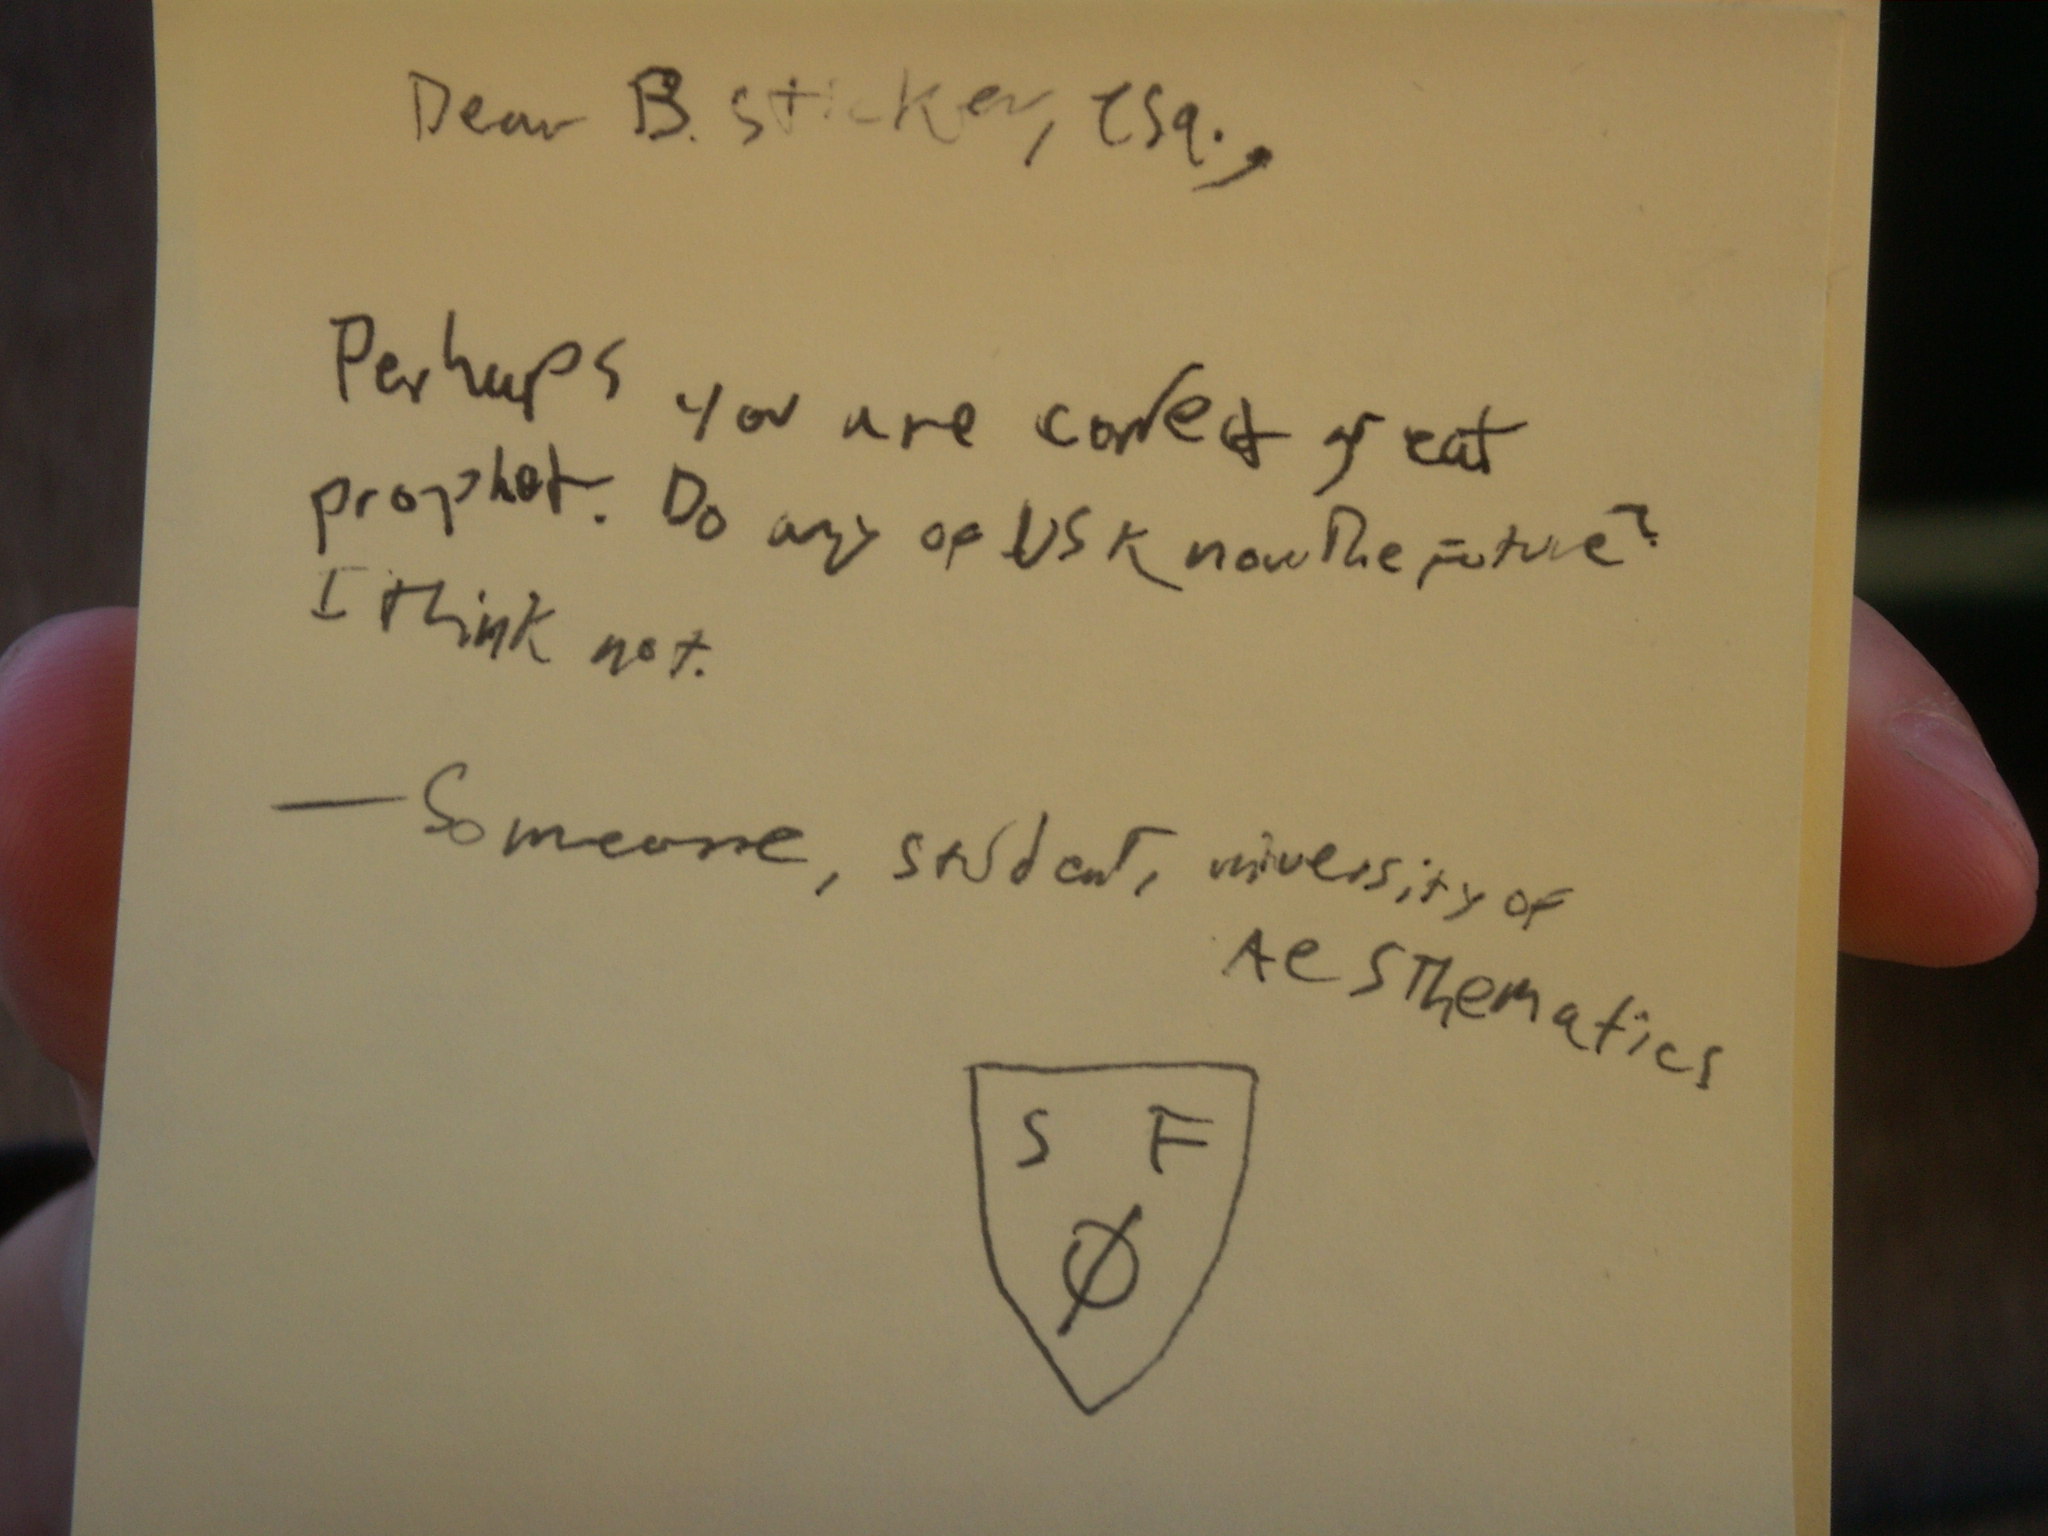 Dear B. Sticker, Esq.,
Perhaps you are correct great
prophet. Do any of us know the future?
I think not.
— Someone, student, university of
Aesthematics
S F
Ø